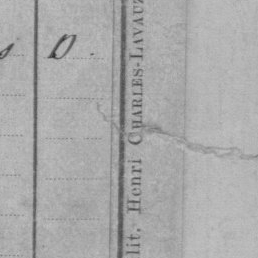 s D.
lit. Henri CHARLES-LAVAUZ